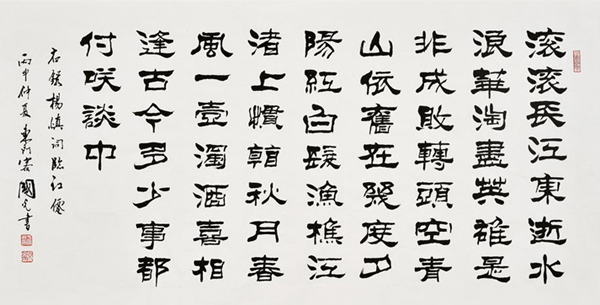 滚滚長江東逝水
浪華淘盡英雄是
非成敗轉頭空青
山依舊在幾度夕
陽紅白髮漁樵江
渚上慣看秋月春
風一壺濁酒喜相
逢古今多少事都
付咲談中
右錄楊慎詞臨江僊
丙申仲夏 國光書